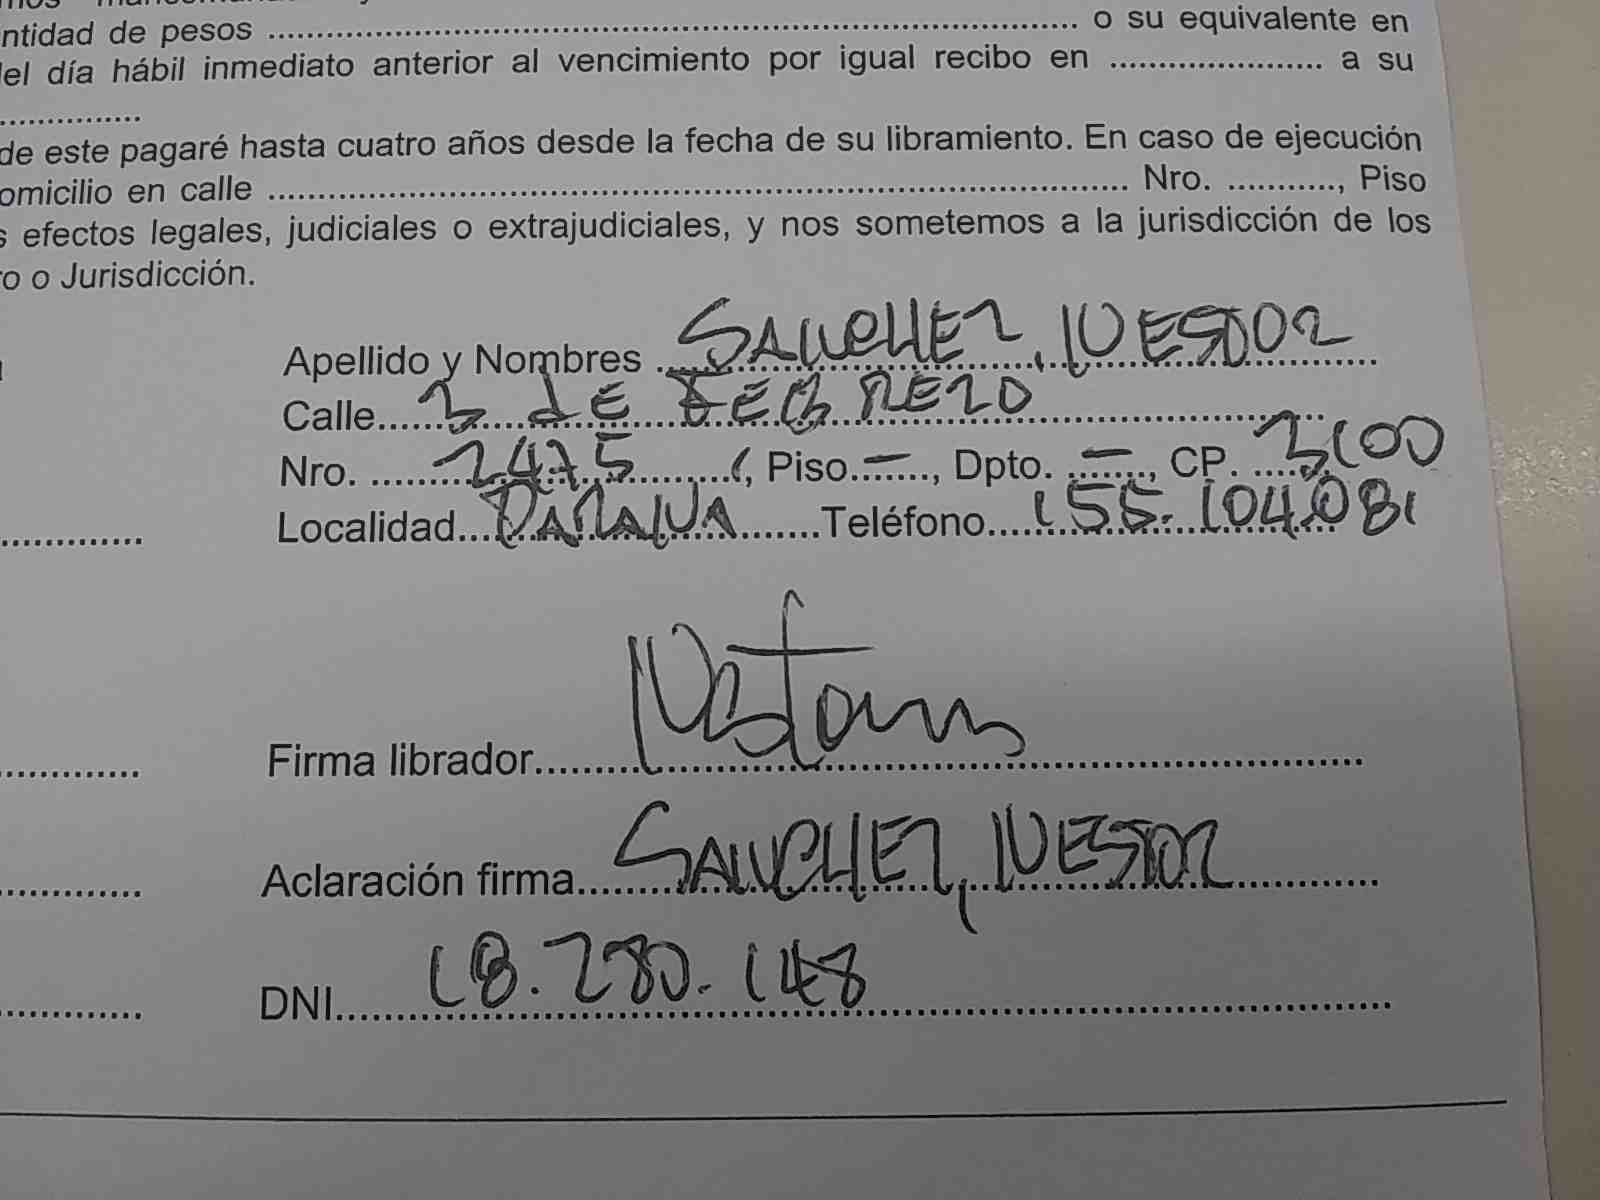 ntidad de pesos ........ o su equivalente en
del día hábil inmediato anterior al vencimiento por igual recibo en ........ a su
........
de este pagaré hasta cuatro años desde la fecha de su libramiento. En caso de ejecución
omicilio en calle ........ Nro. ........, Piso
s efectos legales, judiciales o extrajudiciales, y nos sometemos a la jurisdicción de los
ro o Jurisdicción.
Apellido y Nombres SANCHEZ, NESTOR
Calle 3 de FEBRERO
Nro. 2475, Piso —, Dpto. —, CP. 3100
Localidad PARANA Teléfono 155.104.081
Firma librador
Aclaración firma SANCHEZ, NESTOR
DNI 18.280.148